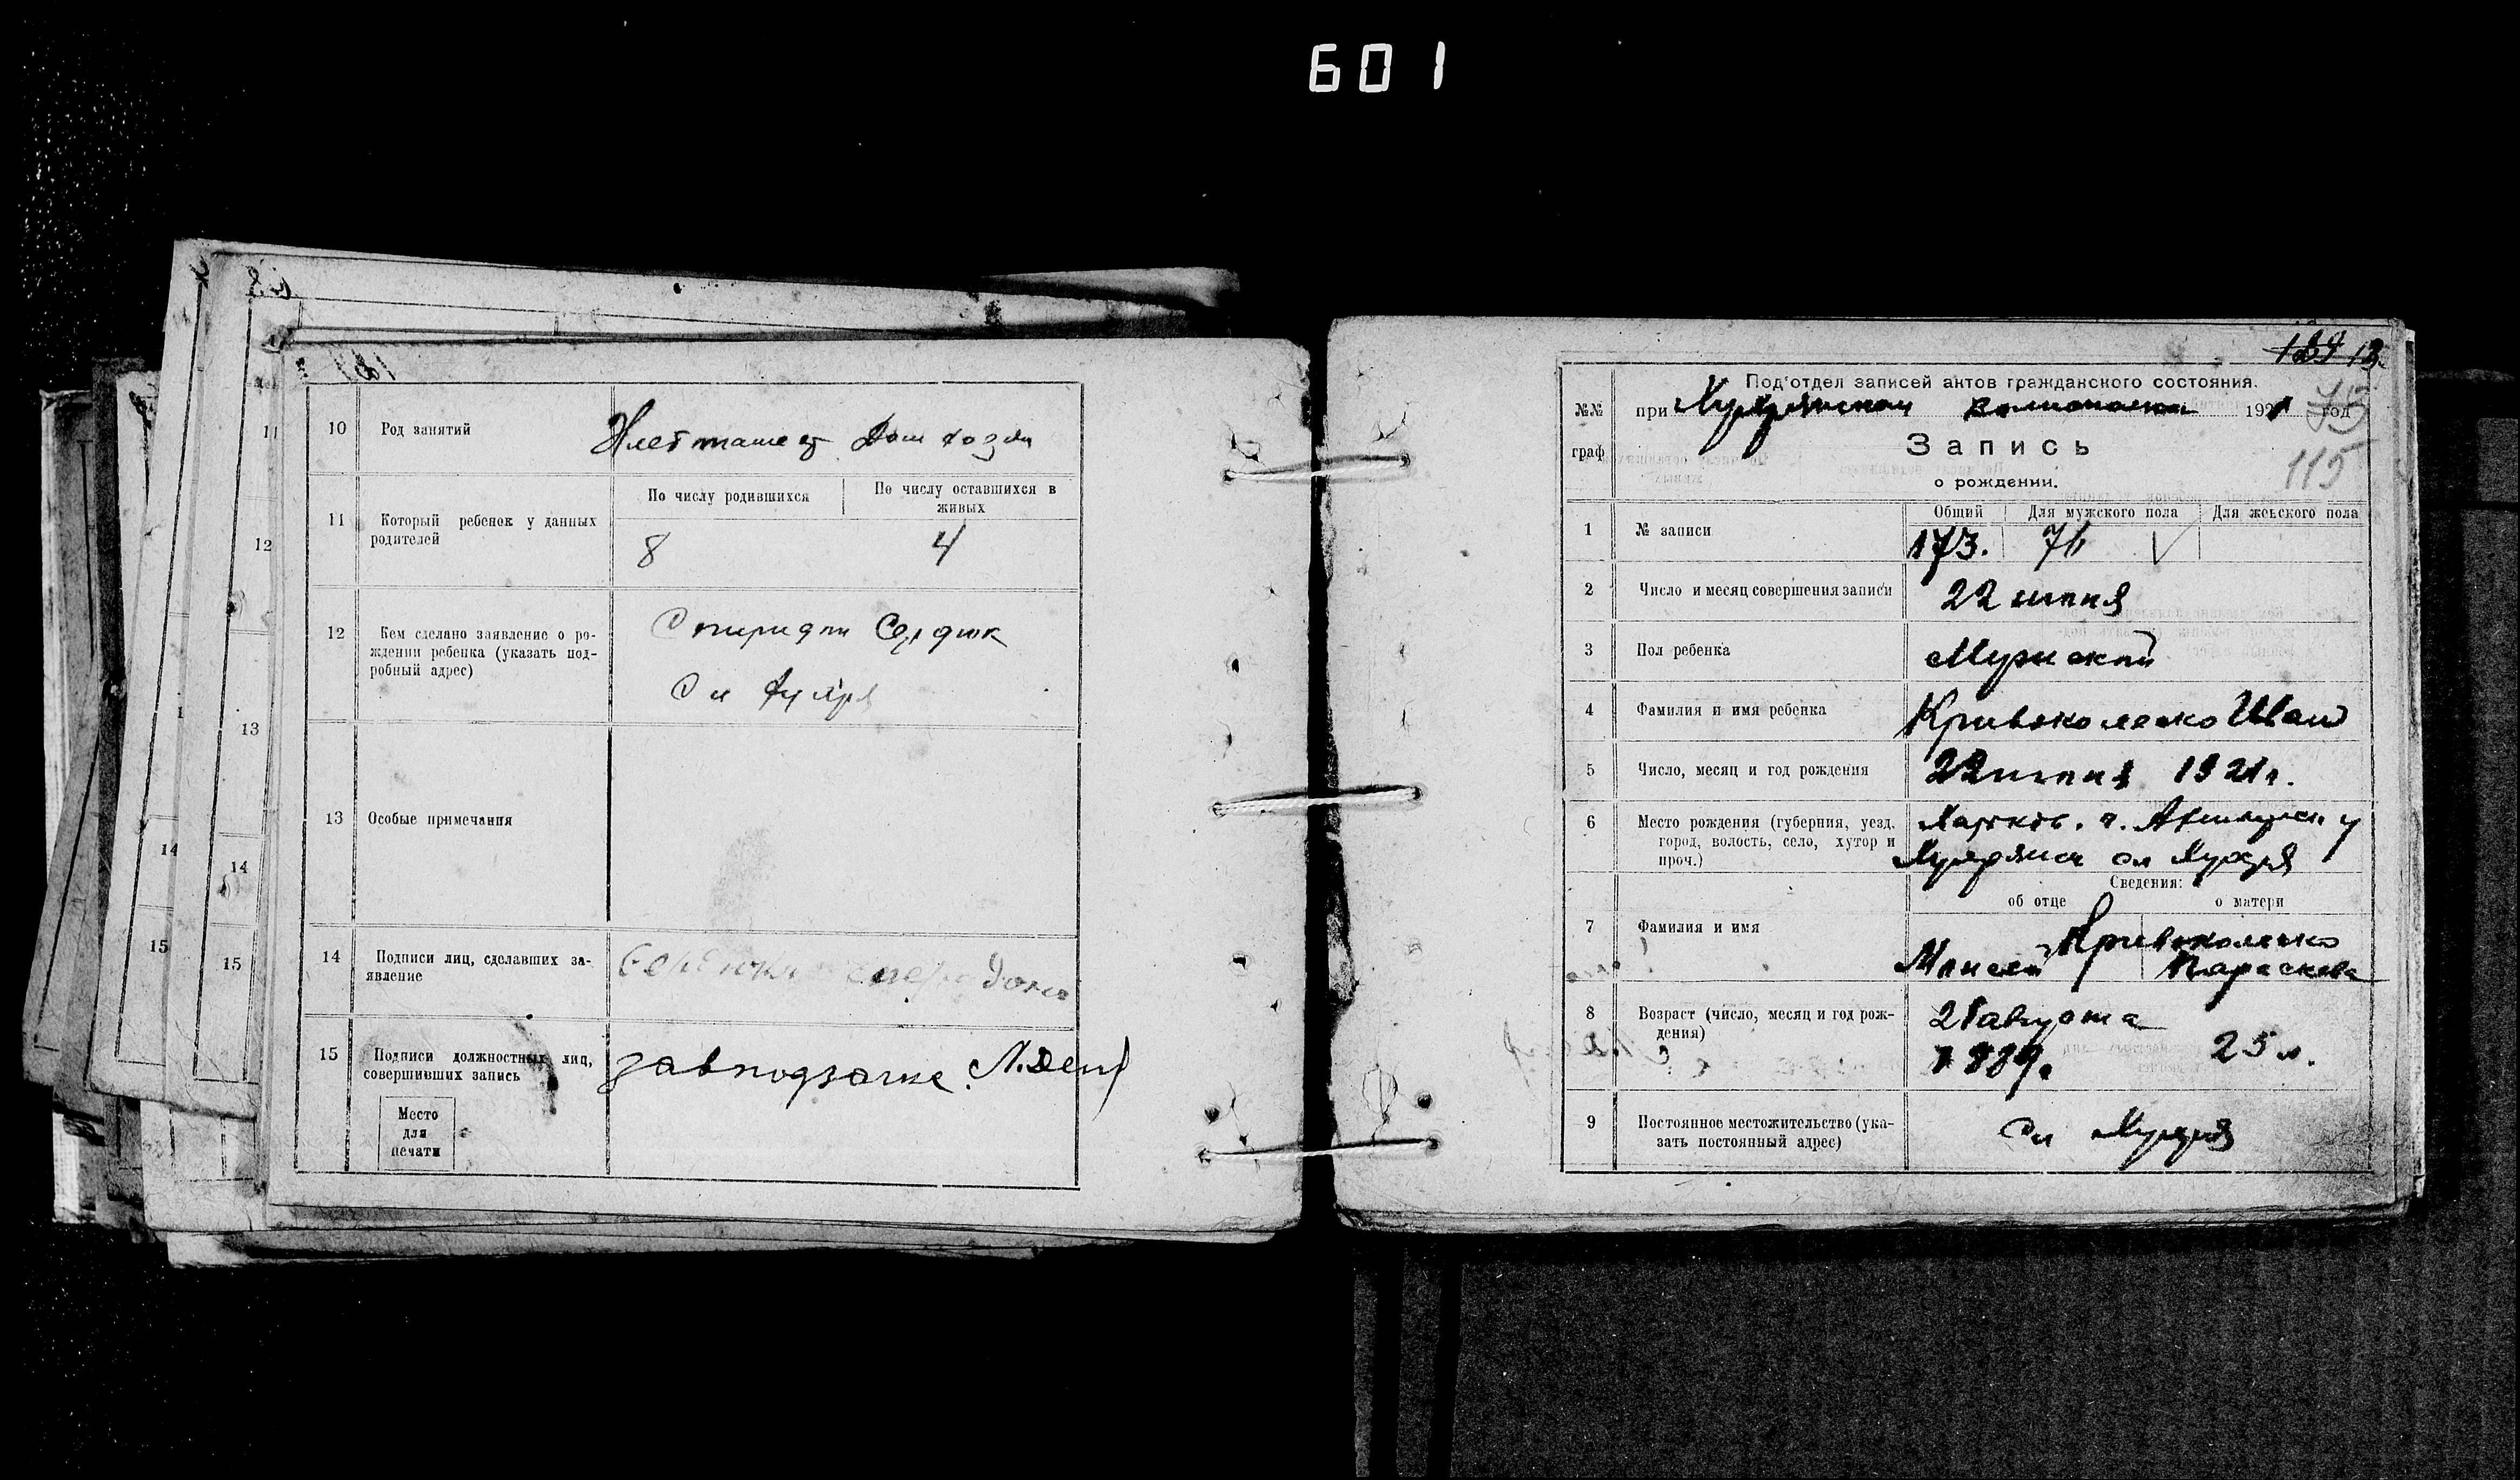 601
10 Род занятий Хлебпашец Дом хозяй
11 Который ребенок у данных родителей
По числу родившихся По числу оставшихся в живых
8 4
12 Кем сделано заявление о ро-
ждении ребенка (указать под-
робный адрес)
Спиридон Сердюк
Сл
13 Особые примечания
14 Подписи лиц, сделавших за-
явление
15 Подписи должностных лиц,
совершивших запись
завподзагсе
Место
для
печати
11
12
13
14
15
13
14
15
Под'отдел записей актов гражданского состояния.
№№ граф
при 1921 год
75
115
Запись
о рождении.
1 № записи
Общий Для мужского пола Для женского пола
173. 76
2 Число и месяц совершения записи 22 июня
3 Пол ребенка Мужской
4 Фамилия и имя ребенка Кривоколеско Иван
5 Число, месяц и год рождения 22 июня 1921 г.
6 Место рождения (губерния, уезд,
город, волость, село, хутор и
проч.)
Харьков. г. у
сл
Сведения:
об отце о матери
7 Фамилия и имя
Кривоколеско
Моисей Параскева
8 Возраст (число, месяц и год рож-
дения)
августа
1889. 25 л.
9 Постоянное местожительство (ука-
зать постоянный адрес)
Сл